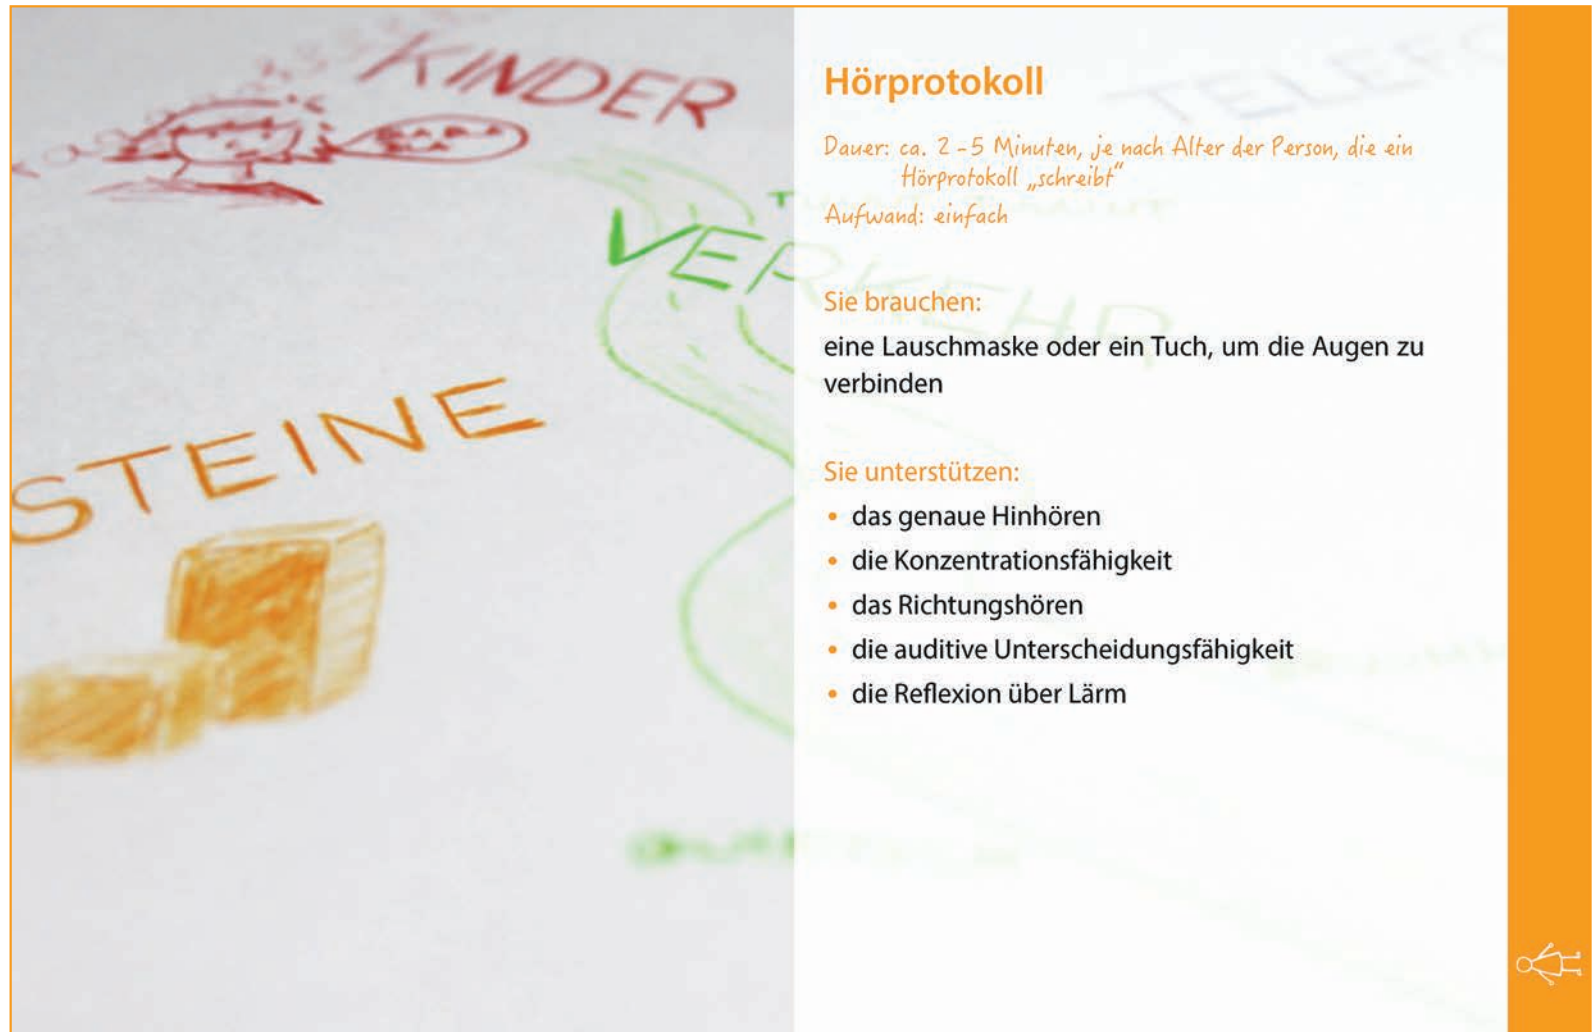 KINDER
VERKEHR
STEINE
Hörprotokoll
Dauer: ca. 2 – 5 Minuten, je nach Alter der Person, die ein
Hörprotokoll „schreibt“
Aufwand: einfach
Sie brauchen:
eine Lauschmaske oder ein Tuch, um die Augen zu
verbinden
Sie unterstützen:
• das genaue Hinhören
• die Konzentrationsfähigkeit
• das Richtungshören
• die auditive Unterscheidungsfähigkeit
• die Reflexion über Lärm